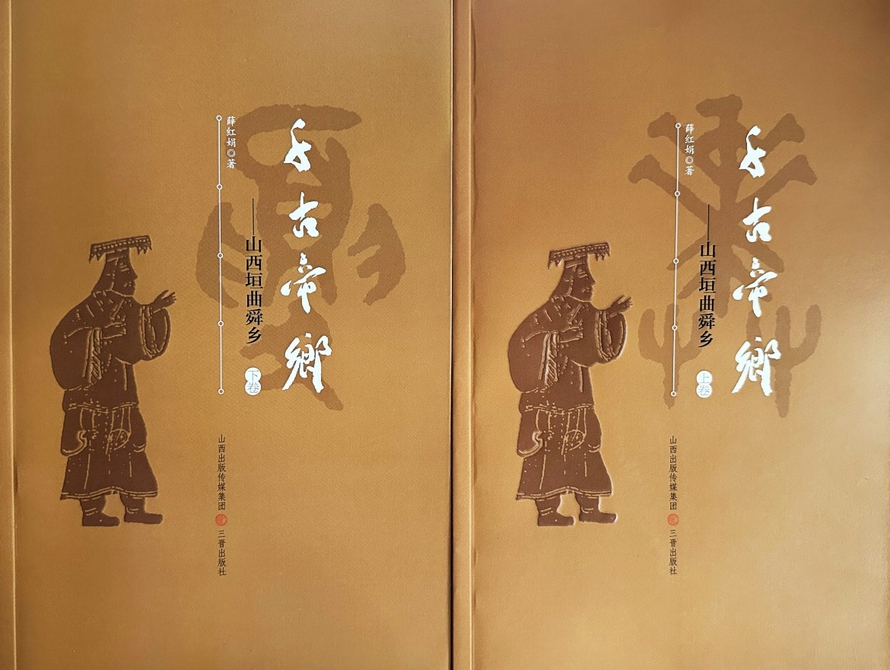 千古帝鄉
——山西垣曲舜乡
下卷
薛红娟◎著
山西出版传媒集团
三晋出版社
千古帝鄉
——山西垣曲舜乡
上卷
薛红娟◎著
山西出版传媒集团
三晋出版社